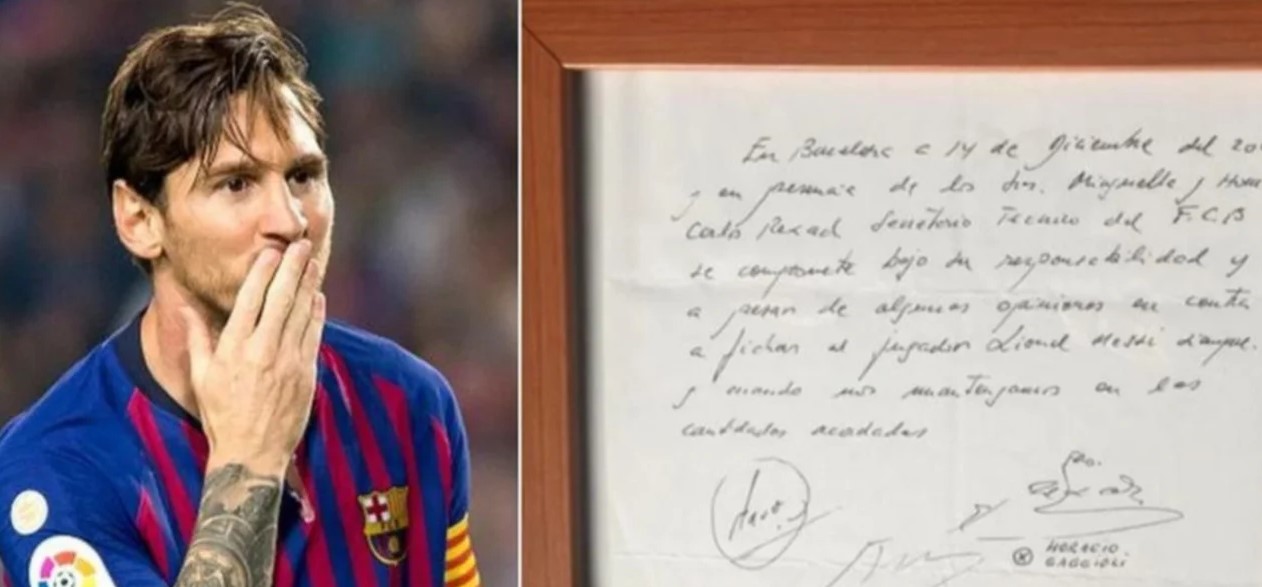 En Barcelona a 14 de Diciembre del 20
y en presencia de los Sres. Minguella y Hora
Carlos Rexach Secretario Técnico del F.C.B
se compromete bajo su responsabilidad y
a pesar de algunas opiniones en contra
a fichar al jugador Lionel Messi siempre
y cuando nos mantengamos en las
cantidades acordadas
HORACIO
GAGGIOLI